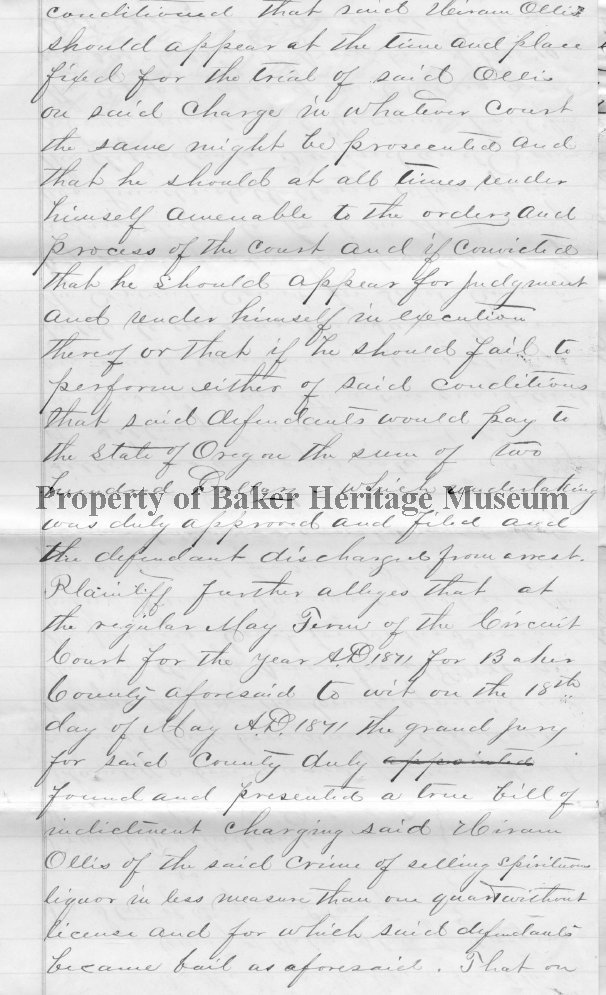 conditioned that said Hiram Ollis
should appear at the time and place
fixed for the trial of said Ollis
on said charge in whatever court
the same might be prosecuted and
that he should at all times render
himself amenable to the orders and
process of the court and if convicted
that he should appear for judgment
and render himself in execution
thereof or that if he should fail to
perform either of said conditions
that said defendants would pay to
the State of Oregon the sum of two
hundred Dollars which undertaking
Property of Baker Heritage Museum
was duly approved and filed and
the defendant discharged from arrest.
Plaintiff further alleges that at
the regular May Term of the Circuit
Court for the year A.D. 1871 for Baker
County aforesaid to wit on the 18th
day of May A.D. 1871 the grand jury
for said County duly appointed
found and presented a true bill of
indictment charging said Hiram
Ollis of the said crime of selling spirituous
liquor in less measure than one quart without
license and for which said defendants
became bail as aforesaid. That on